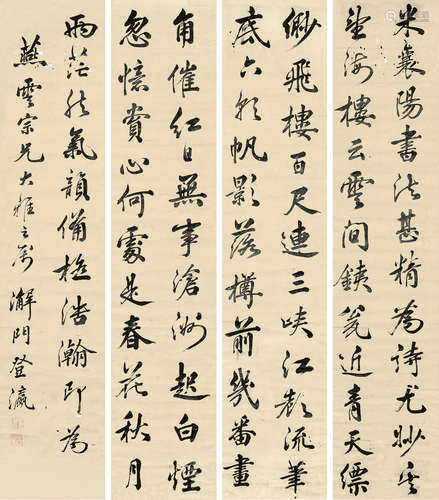 米襄陽書法甚精為詩尤妙其
望海樓云雲間鐵甕近青天縹
緲飛樓百尺連三峽江聲流筆
底六朝帆影落樽前幾番畫
角催紅日無事滄洲起白煙
忽憶賞心何處是春花秋月
兩茫然氣韻備極浩瀚即為
燕雲宗兄大雅之属 澥門登瀛